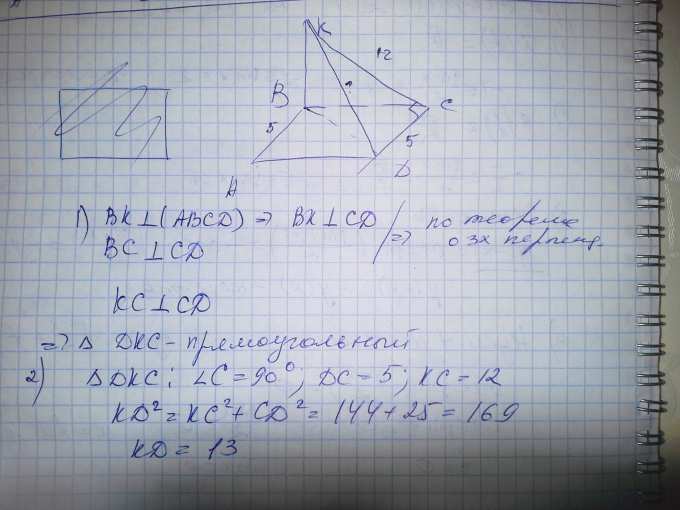 K
12
B
C
5
5
?
A
D
1) BK ⊥ (ABCD) => BK ⊥ CD / => по теореме
BC ⊥ CD о 3х перпенд.
KC ⊥ CD
=> Δ DKC - прямоугольный
2) Δ DKC: ∠C = 90°; DC = 5; KC = 12
KD² = KC² + CD² = 144 + 25 = 169
KD = 13